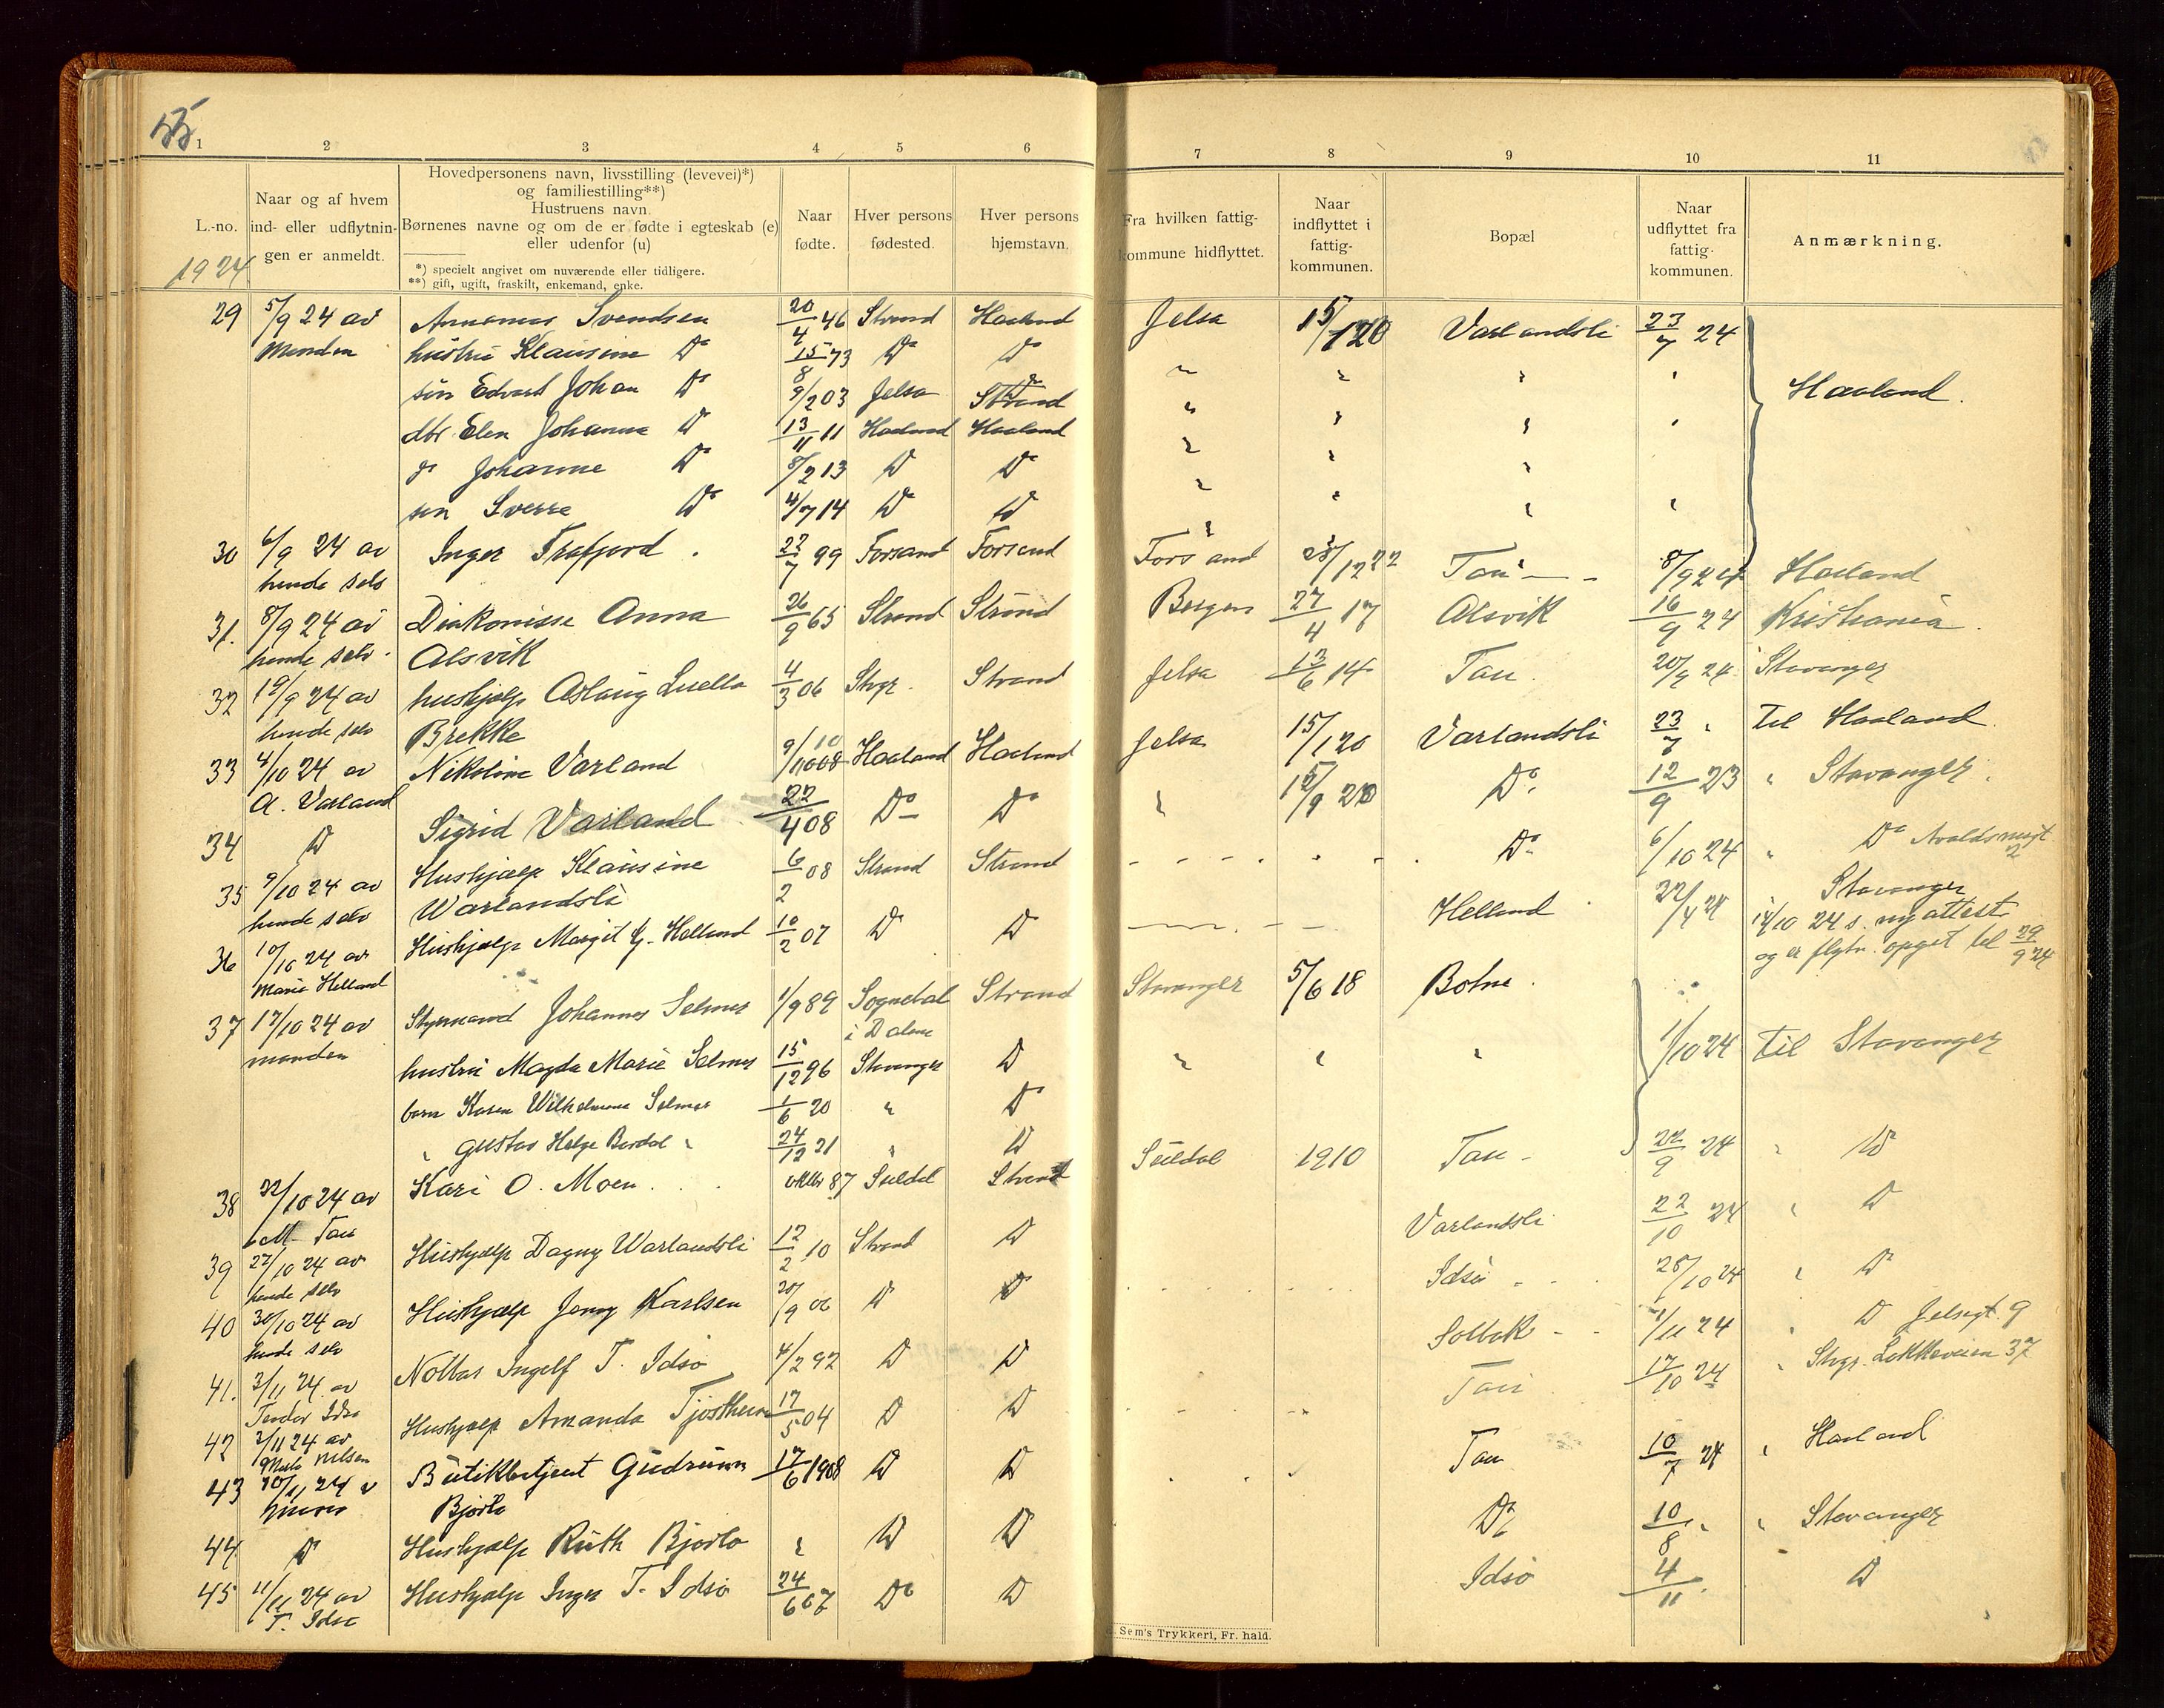 55
1 2 3 4 5 6 7 8 9 10 11
L.-no.
1924
Naar og af hvem
ind- eller udflytnin-
gen er anmeldt.
Hovedpersonens navn, livsstilling (levevei)*)
og familiestilling**)
Hustruens navn.
Børnenes navne og om de er fødte i egteskab (e)
eller udenfor (u)
*) specielt angivet om nuværende eller tidligere.
**) gift, ugift, fraskilt, enkemand, enke.
Naar
fødte.
Hver persons
fødested.
Hver persons
hjemstavn.
Fra hvilken fattig-
kommune hidflyttet.
Naar
indflyttet i
fattig-
kommunen.
Bopæl
Naar
udflyttet fra
fattig-
kommunen.
Anmærkning.
29 5/9 24 av Svendsen 20/4 46 Strand Haaland Jelsa 15/1 20 Varlandsli 23/7 24
manden hustru Klausine Do 15/8 73 Do Do
søn Edvart Johan Do 9/2 03 Jelsa Strand Haaland.
dtr Elen Johanna Do 13/11 11 Haaland Haaland
do Johanne Do 8/2 13 Do Do
søn Sverre Do 4/7 14 Do Do
30 6/9 24 av Inger Frafjord. 99 Forsand Forsand Forsand Tau 8/9 24 Haaland
hende selv
31. 8/9 24 av Diakonisse Anna 26/9 65 Strand Strand Bergen 27/4 17 Alsvik 16/9 24 Kristiania.
hende selv. Alsvik
32 19/9 24 av hushjælp Aslaug Luella 4/3 06 Stvgr. Strand Jelsa 13/6 14 Tau. 20/9 24 Stavanger
hende selv Brekke
33 4/10 24 av Nikoline Varland Haaland Haaland Jelsa 15/1 20 Varlandsli 23/7 " Til Haaland.
A. Varland
34 Do Sigrid Varland 22/4 08 Do Do " Do. 12/9 23 " Stavanger.
35 9/10 24 av Hushjælp Klausine 6/2 08 Strand Strand Do 6/10 24 " Do Avaldsnesgt 2
hende selv Warlandsli
36 10/10 24 av Hushjælp Margit G. Helland 10/2 07 Do Do Helland 22/4 24 " Stavanger
Marie Helland
14/10 24 s. ny attest
og er flytn. opgit til 29/9 24
37 17/10 24 av Styrmand Johannes Selmer 1/9 89 Sogndal Strand Stavanger 5/6 18 Botne.
manden i Dalene
hustru Magda Marie Selmer 15/12 96 Stavanger Do " " " 1/10 24 Til Stavanger
barn Karen Wilhelmine Selmer 1/6 20 " Do
" Gustav Helge " 24/12 21 " Do
38 22/10 24 av Kari O. Moen. 87 Suldal Strand Suldal 1910 Tau 22/9 24 " Do
M. Tau
39 22/10 24 av Hushjælp Dagny Warlandsli 12/2 10 Strand Do Varlandsli 22/10 24 " Do
hende selv
40 30/10 24 av Hushjælp Jenny Karlsen 20/9 06 Do Do Idsø 28/10 24 " Do
hende selv
41. 3/11 24 av Ingolf T. Idsø 4/2 92 Do Do Solbak 1/11 24 " Do Jelsagt. 9
Idsø
42 7/11 24 av Hushjælp Amanda Tjøstheim 17/5 04 Do Do Tau 17/10 24 " Stvgr. Løkkeveien 37
Nilsen
43 10/11 24 av Butikbetjent Gudrunn 17/6 1908 Do Do Tau 10/7 24 " Haaland
Bjørlo
44 Do Hushjælp Ruth Bjørlo " Do Do Do 10/8 " " Stavanger
45 11/11 24 av Hushjælp Inger T. Idsø 24/6 07 Do Do Idsø 4/11 Do
T. Idsø
Sem's Trykkeri, Fr. hald.